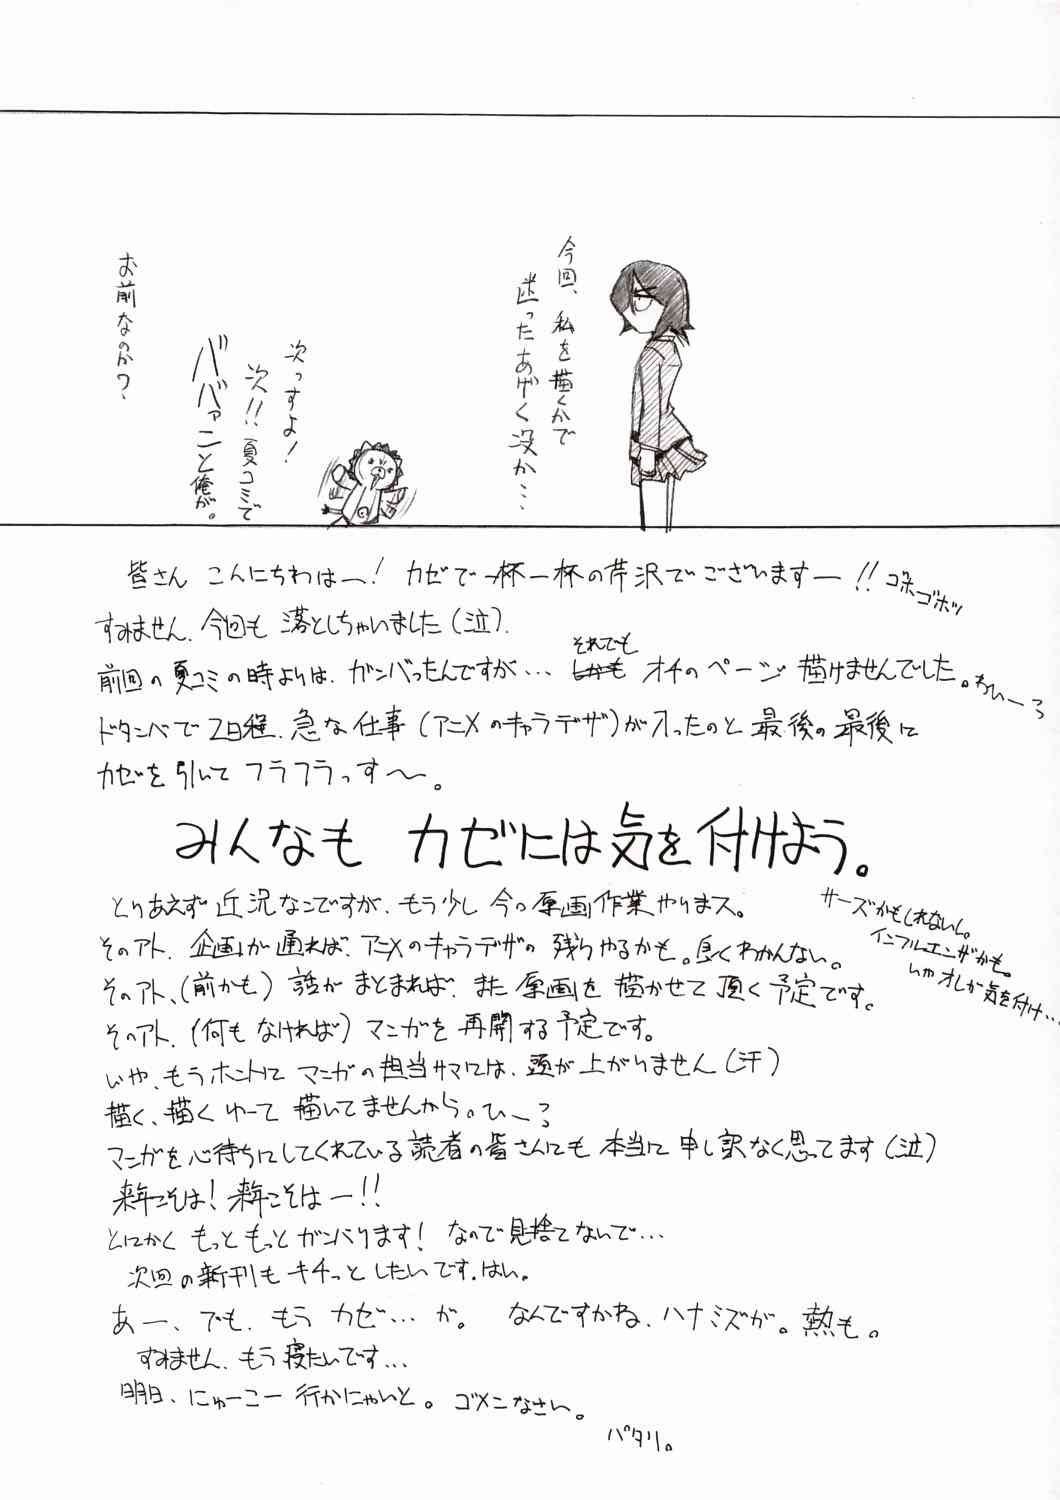 今回、私を描くかで
迷ったあげく没か…
次っすよ！
次!!夏コミで
ババァーンと俺が。
お前なのか？
皆さん こんにちわはー！ カゼで一杯一杯の芹沢でございますー!! ゴホゴホッ
すみません、今回も 落としちゃいました（泣）。
前回の夏コミの時よりは、ガンバったんですが… それでも オチのページ 描けませんでした。わいーろ
ドタンバで 2日程、急な仕事（アニメのキャラデザ）が入ったのと 最後の最後に
カゼを引いて フラフラっす〜。
みんなも カゼには気を付けよう。
サーズかもしれないし。
インフルエンザかも。
いや オレが気を付け…
とりあえず 近況なんですが、もう少し 今の原画作業やりまス。
そのアト、企画が通れば、アニメのキャラデザの 残りやるかも。良くわかんない。
そのアト、（前かも）話が まとまれば、また 原画を 描かせて 頂く予定です。
そのアト、（何もなければ）マンガを 再開する予定です。
いや、もうホントに マンガの担当サマには、頭が上がりません（汗）
描く、描くゆーて 描いてませんから。ひーろ
マンガを心待ちにしてくれている読者の皆さんにも 本当に 申し訳なく思ってます（泣）
来年こそは！来年こそはー!!
とにかく もっともっとガンバります！ なので見捨てないで…
次回の新刊も キチっと したいです。はい。
あー、でも、もう カゼ…が。 なんですかね、ハナミズが。熱も。
すみません、もう寝たいです…
明日、にゅーこー 行かにゃいと。 ゴメンなさい。
パタリ。